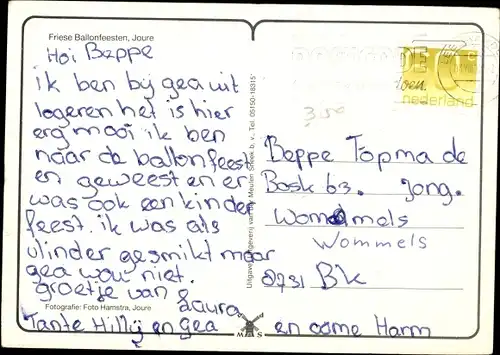 Friese Ballonfeesten, Joure
Hoi Beppe
ik ben bij gea uit
logeren het is hier
erg mooi ik ben
naar de ballonfeest
en geweest en er
was ook een kinder
feest. ik was als
vlinder gesmikt maar
gea wou niet.
groetje van Laura
Fotografie: Foto Hamstra, Joure
Tante Hilly en Gea
en oome Harm
Tel. 05150-18315
POSTCODE
nederland
3,50
Beppe Topma de
Bosk 63. Jong.
Wommels
Wommels
8731 BK
M S